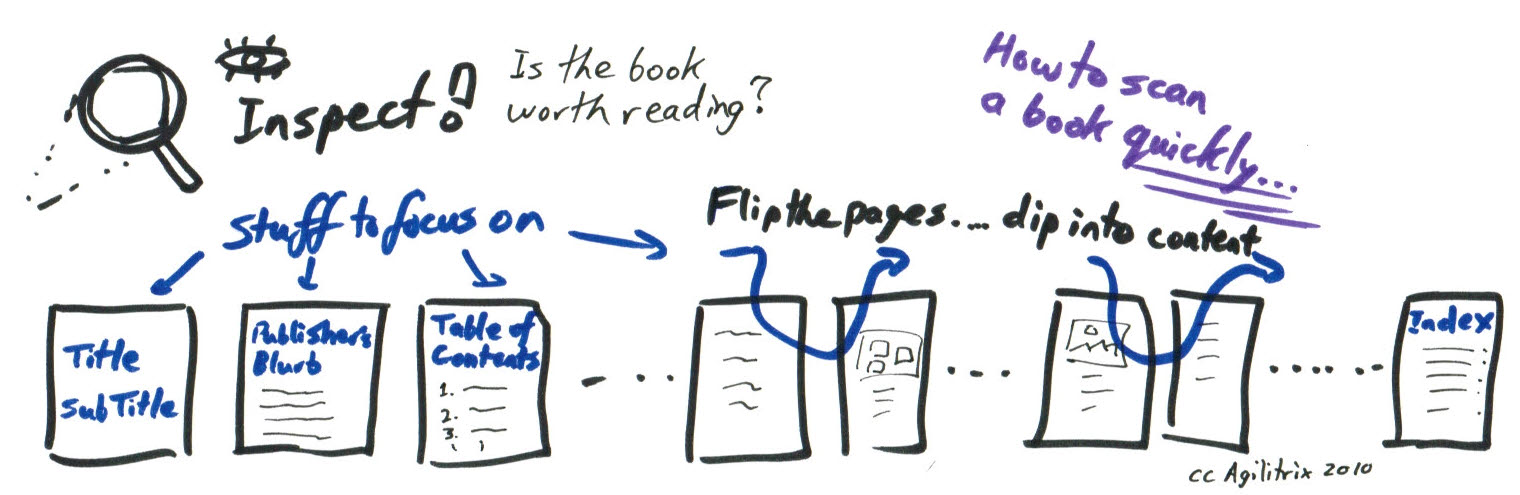 Inspect!
Is the book
worth reading?
How to scan
a book quickly...
Stuff to focus on
Flip the pages.... dip into content
Title
SubTitle
Publishers
Blurb
Table of
Contents
1.
2.
3.
Index
cc Agilitrix 2010